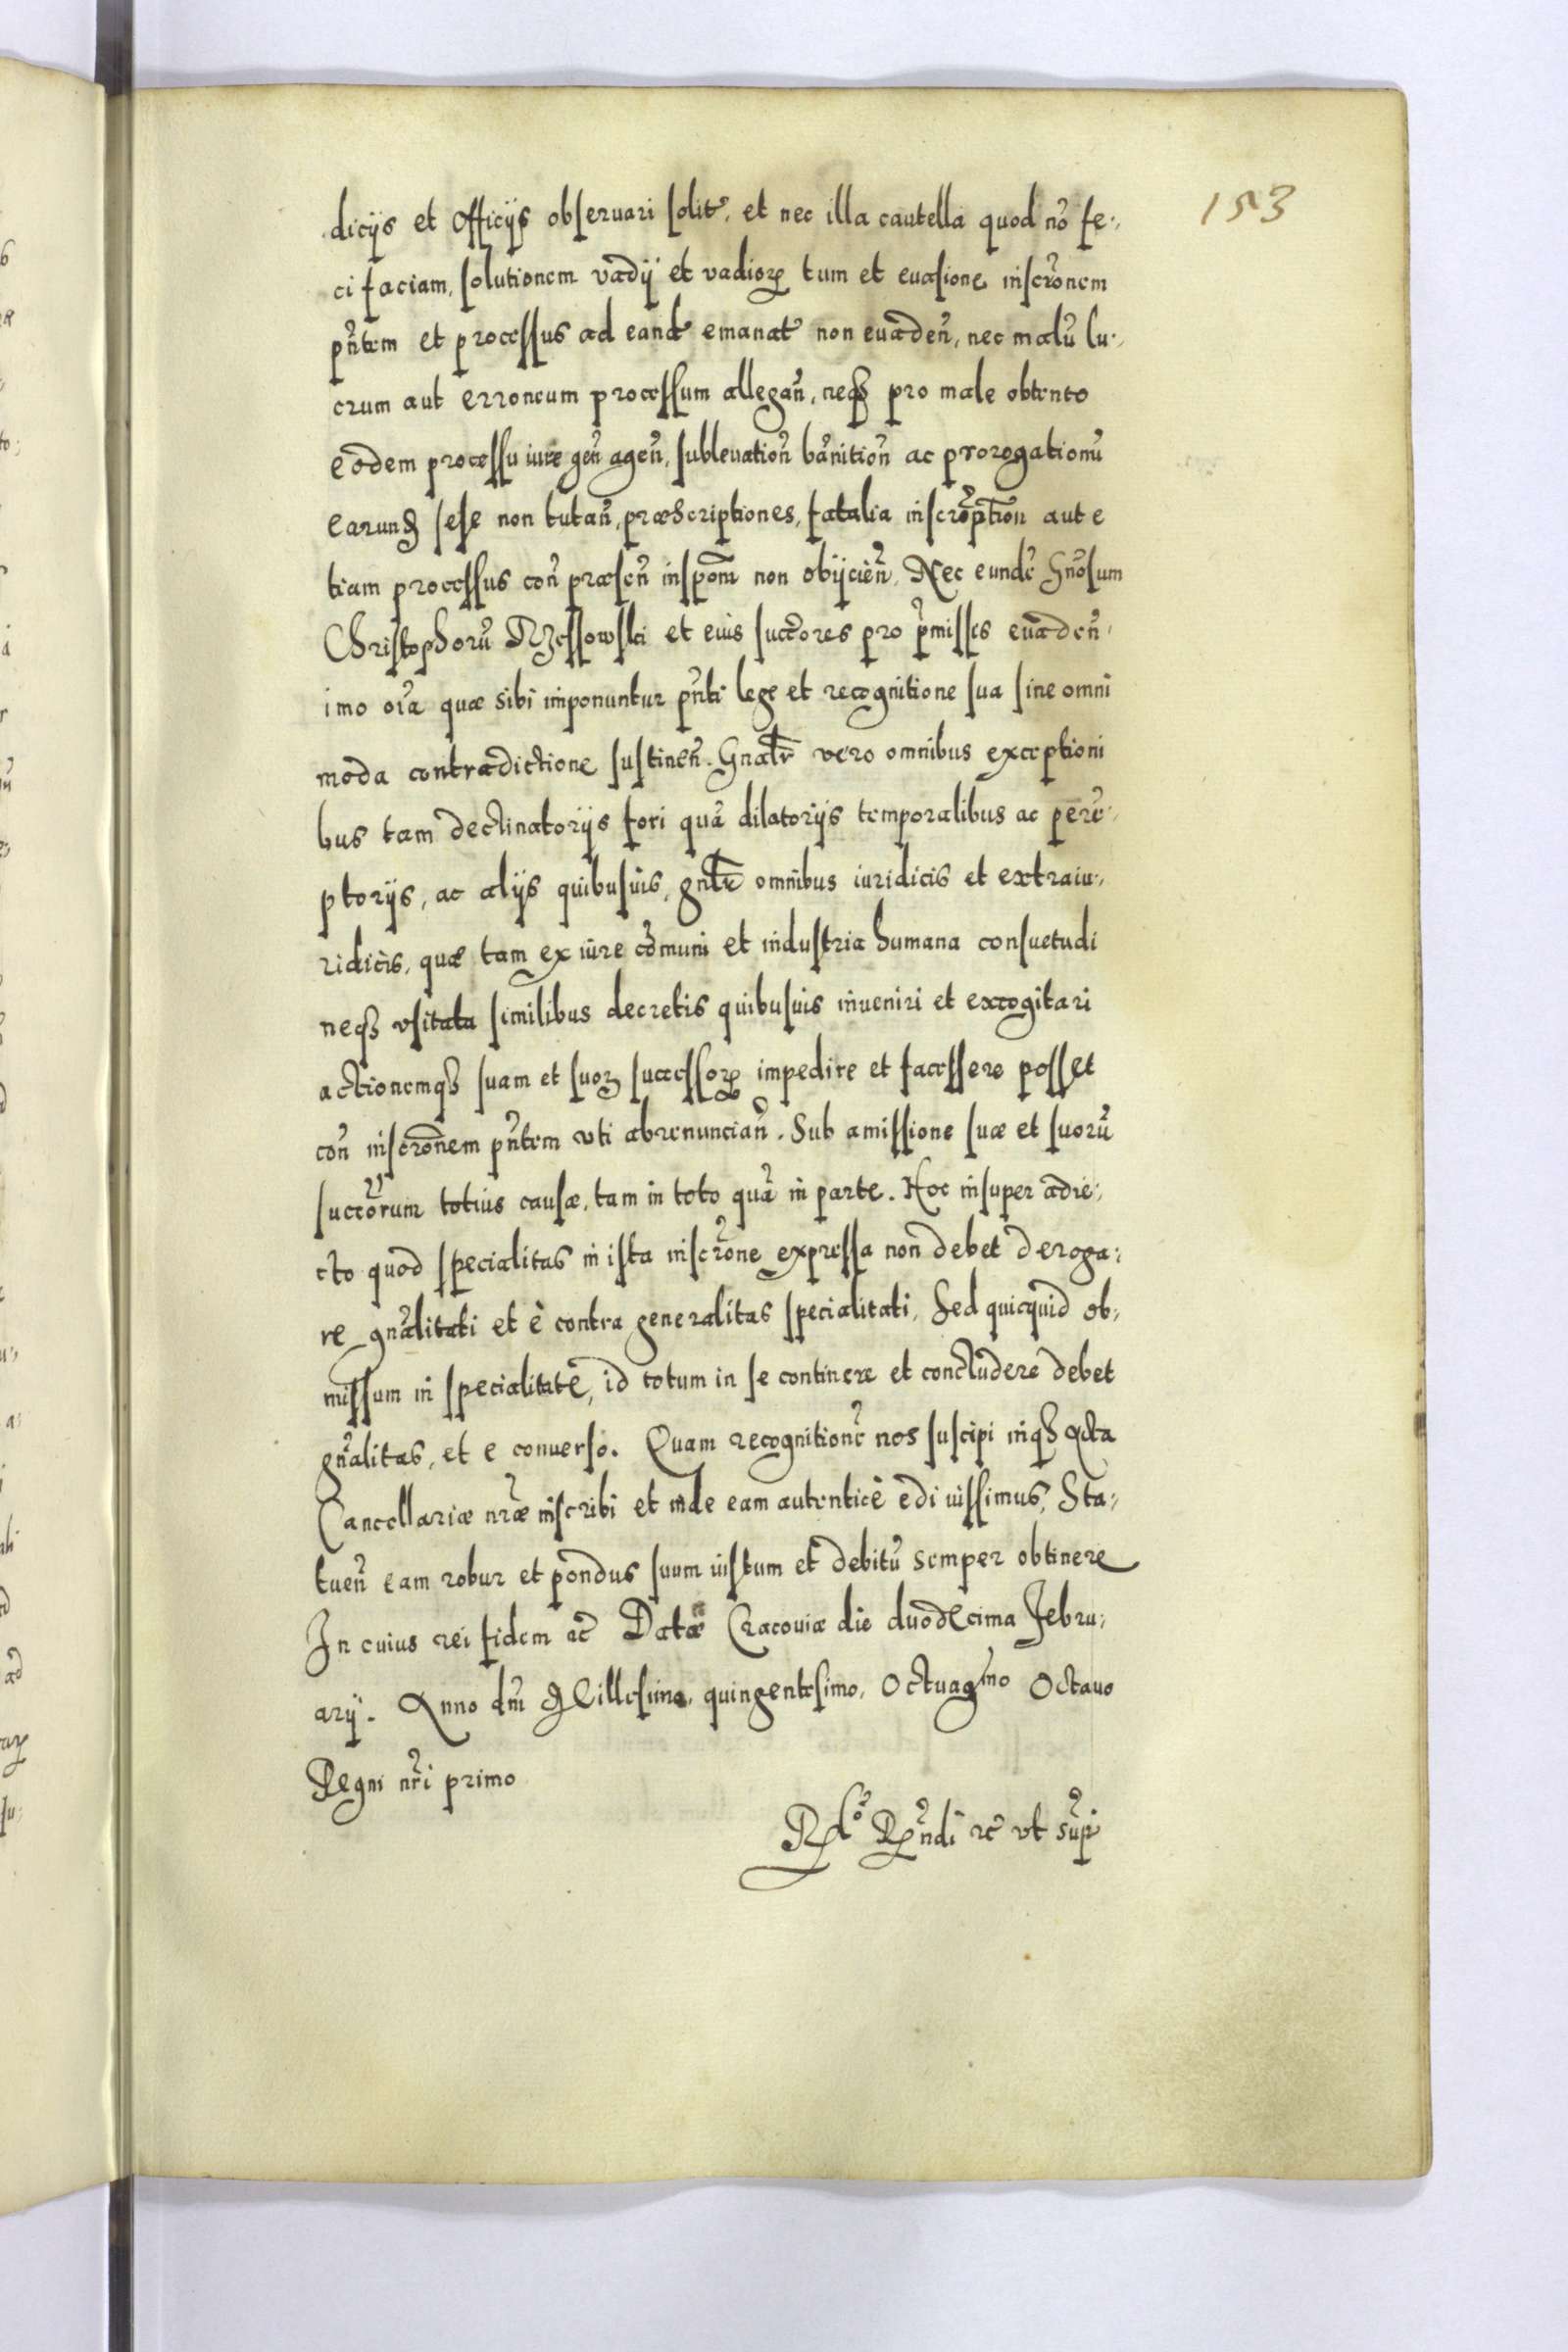 153
dicijs et Officijs obseruari solit̃, et nec illa cautella quod nõ fe⸗
ci faciam, solutionem vadij et vadioꝝ tum et euasione inscr̃onem
pñtem et processus ad eand̃ emanat̃ non euadeñ, nec malũ lu⸗
crum aut erroneum processum allegañ, neqꝫ pro male obtento
eodem processu iure geñ ageñ, subleuatioñ bãnitioñ ac prorogationũ
earund sese non tutañ, præscriptiones, fatalia inscrõptioñ aut e
tiam processus coñ præseñ insp̃onem non obijcieñ, Nec eundẽ Gñosum
Christophorũ Rzessowski et eius succ̃ores pro p̃missis euadeñ,
imo oĩa quæ sibi imponuntur pñti lege et recognitione sua sine omni
moda contradictione sustineñ. Gñalr̃ vero omnibus exceptioni
bus tam declinatorijs fori quã dilatorijs temporalibus ac perẽ⸗
ptorijs, ac alijs quibusuis, gñlr̃ omnibus iuridicis et extraiu⸗
ridicis, quæ tam ex iure cõmuni et industria humana consuetudi
neqꝫ vsitata similibus decretis quibusuis inueniri et excogitari
actionemqꝫ suam et suoꝝ successoꝝ impedire et facessere posset
coñ inscrõnem pñtem vti abrenunciañ. Sub amissione suæ et suorũ
succ̃orum totius causæ, tam in toto quã in parte. Hoc insuper adie⸗
cto quod specialitas in ista inscr̃one expressa non debet deroga⸗
re gñalitati et è contra generalitas specialitati, Sed quicquid ob⸗
missum in specialitatẽ, id totum in se continere et concludere debet
gñalitas, et e conuerso. Quam recognitionẽ nos suscipi inqꝫ Acta
Cancellariæ nr̃æ inscribi et inde eam autenticè edi iussimus, Sta⸗
tueñ eam robur et pondus suum iustum et debitũ semper obtinere
In cuius rei fidem &c̃ Datæ Cracouiæ die duodecima Febru⸗
arij. Anno dñi Millesimo, quingentesimo, Octuagmo Octauo
Regni nr̃i primo
Rlõ Rñdi &c̃ vt sup̃